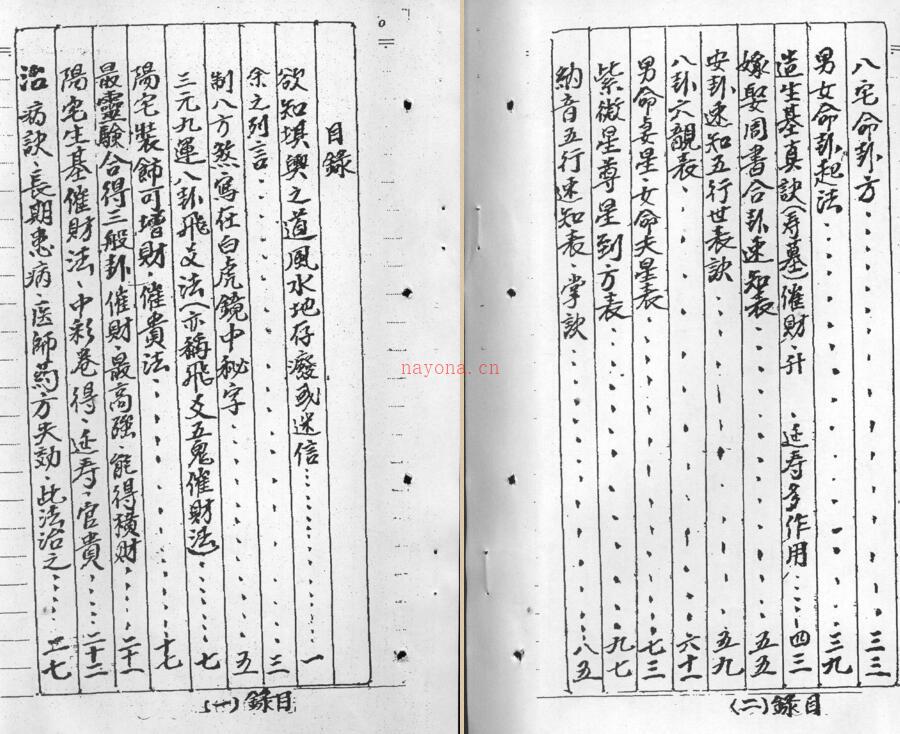 目錄
欲知堪輿之道風水地存廢或迷信⋯⋯一
余之列言⋯⋯三
制八方煞、寫在白虎鏡中秘字⋯⋯五
三元九運八卦飛爻法（亦稱飛爻五鬼催財法）⋯⋯七
陽宅裝飾可增財、催貴法⋯⋯十七
最靈驗合得三般卦催財、最高強、能得橫財⋯⋯二十一
陽宅生基催財法、中彩卷得、延寿、官貴⋯⋯二十二
治病訣、長期患病、医師葯方失効、此法治之⋯⋯二七
目錄（一）
八宅命卦方⋯⋯三三
男女命卦起法⋯⋯三九
造生基真訣（寿墓）催財升、延寿多作用⋯⋯四三
嫁娶周書合卦速知表⋯⋯五五
安卦速知五行世表訣⋯⋯五九
八卦六親表⋯⋯六十一
男命妻星、女命夫星表⋯⋯七三
紫微星尊星到方表⋯⋯九七
納音五行速知表、掌訣⋯⋯八五
目錄（二）
nayona.cn